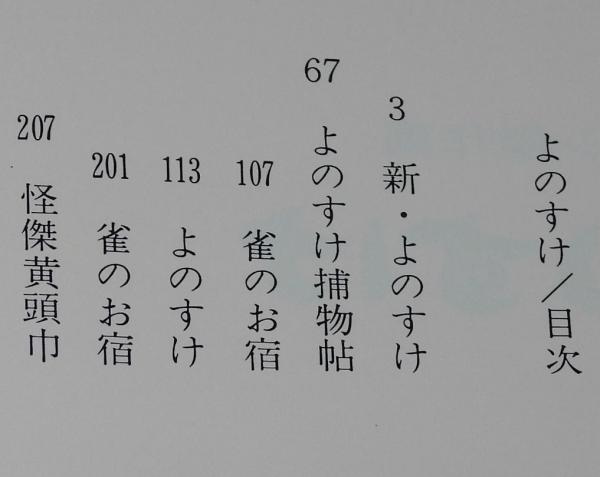 よのすけ／目次
3 新・よのすけ
67 よのすけ捕物帖
107 雀のお宿
113 よのすけ
201 雀のお宿
207 怪傑黄頭巾